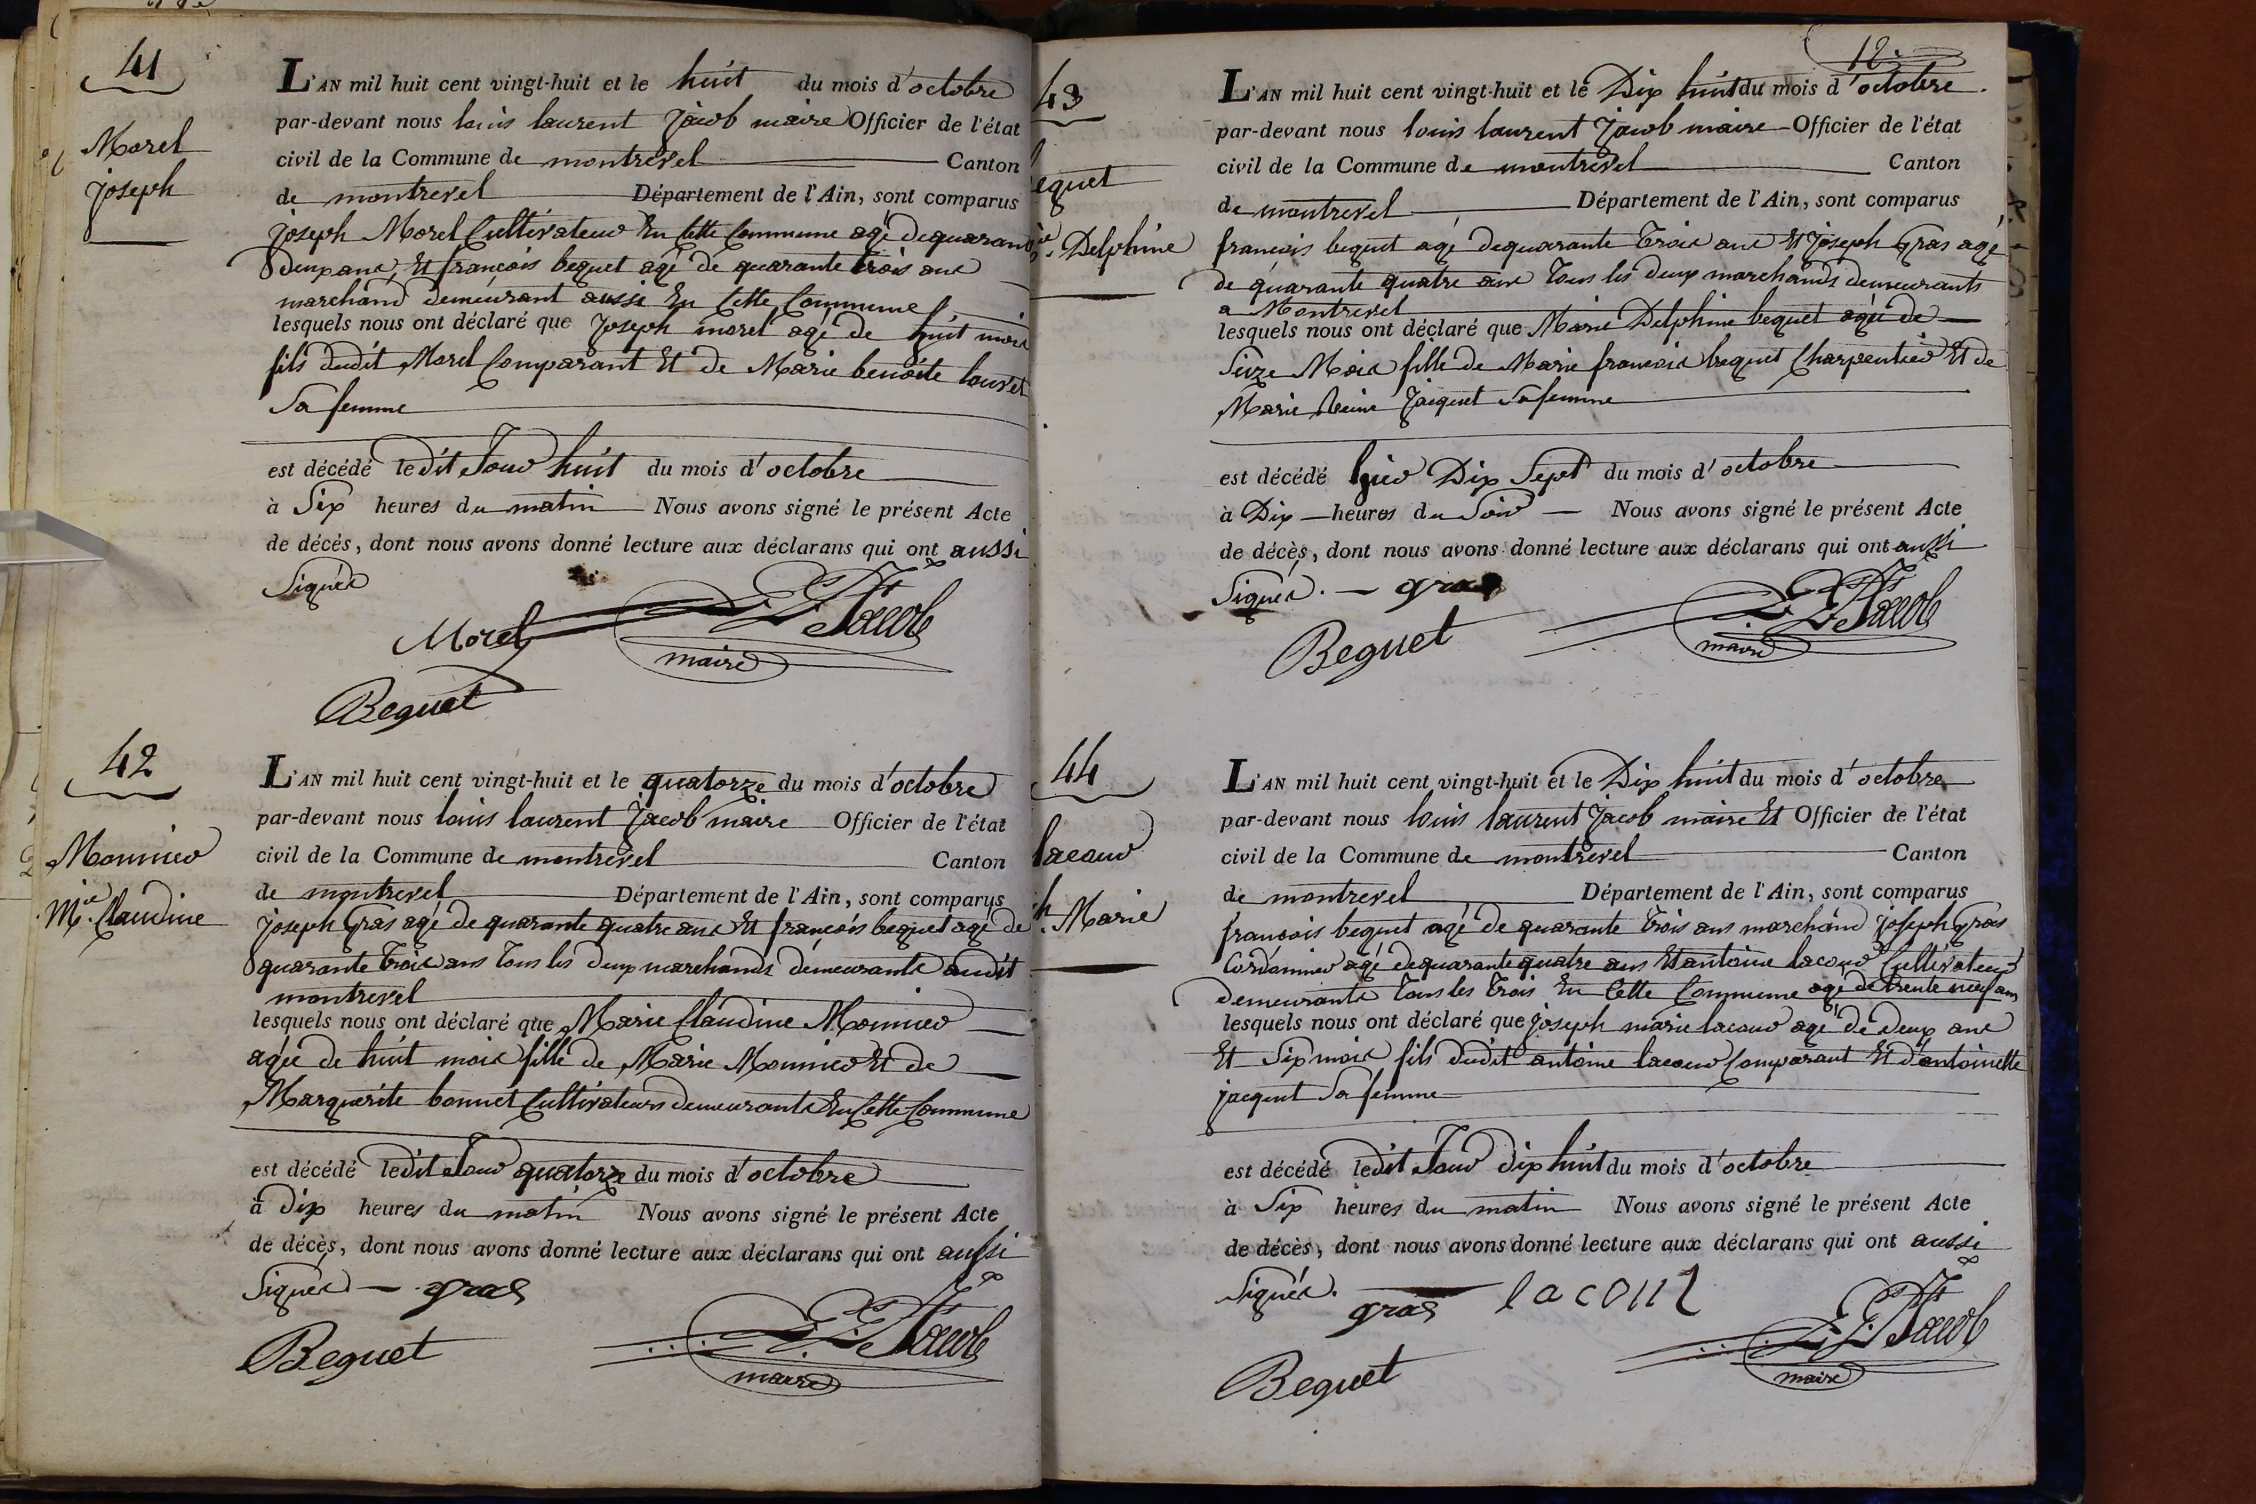 41
Morel
joseph
L'AN mil huit cent vingt-huit et le huit du mois d'octobre
par-devant nous louis laurent Jacob maire Officier de l'état
civil de la Commune de montrevel Canton
de montrevel Département de l'Ain, sont comparus
joseph Morel Cultivateur En Cette Commune agé de quarante
deux ans, Et françois bequet agé de quarante trois ans
marchand demeurant aussi En Cette Commune
lesquels nous ont déclaré que Joseph morel agé de huit mois
fils dudit Morel Comparant Et de Marie benoite
Sa femme
est décédé ledit Jour huit du mois d'octobre
à Six heures du matin Nous avons signé le présent Acte
de décès, dont nous avons donné lecture aux déclarans qui ont aussi
Signés
Morel L. L. Jacob
maire
Bequet
42
Monnier
Mie. Claudine
L'AN mil huit cent vingt-huit et le quatorze du mois d'octobre
par-devant nous louis laurent Jacob maire Officier de l'état
civil de la Commune de montrevel Canton
de montrevel Département de l'Ain, sont comparus
joseph Gras agé de quarante quatre ans Et françois bequet agé de
quarante trois ans tous les deux marchands demeurants audit
montrevel
lesquels nous ont déclaré que Marie Claudine Monnier
agée de huit mois fille de Marie Monnier Et de
Marguerite bonnet Cultivateurs demeurants En Cette Commune
est décédé ledit Jour quatorze du mois d'octobre
à dix heures du matin Nous avons signé le présent Acte
de décès, dont nous avons donné lecture aux déclarans qui ont aussi
Signés gras
Bequet L. L. Jacob
maire
12
43
equet
ie. Delphine
L'AN mil huit cent vingt-huit et le Dix huit du mois d'octobre.
par-devant nous louis laurent Jacob maire Officier de l'état
civil de la Commune de montrevel Canton
de montrevel Département de l'Ain, sont comparus
francois bequet agé de quarante trois ans Et Joseph Gras agé
de quarante quatre ans tous les deux marchands demeurants
a Montrevel
lesquels nous ont déclaré que Marie Delphine bequet agée de
Seize Mois fille de Marie francois bequet Charpentier Et de
Marie Jacquet Sa femme
est décédé hier Dix Sept du mois d'octobre
à Dix heures du Soir Nous avons signé le présent Acte
de décès, dont nous avons donné lecture aux déclarans qui ont aussi
Signés. gras
Bequet L. L. Jacob
maire
44
lacour
h. Marie
L'AN mil huit cent vingt-huit et le Dix huit du mois d'octobre
par-devant nous louis laurent Jacob maire Et Officier de l'état
civil de la Commune de montrevel Canton
de montrevel Département de l'Ain, sont comparus
francois bequet agé de quarante trois ans marchand joseph Gras
Cordonnier agé de quarante quatre ans Et antoine lacour Cultivateur
demeurants tous les trois En Cette Commune agé de trente neuf ans
lesquels nous ont déclaré que joseph marie lacour agé de deux ans
Et Six mois fils dudit antoine lacour Comparant Et d'antoinette
jacquet Sa femme
est décédé ledit Jour dix huit du mois d'octobre
à Six heures du matin Nous avons signé le présent Acte
de décès, dont nous avons donné lecture aux déclarans qui ont aussi
Signés. gras lacour
Bequet L. L. Jacob
maire